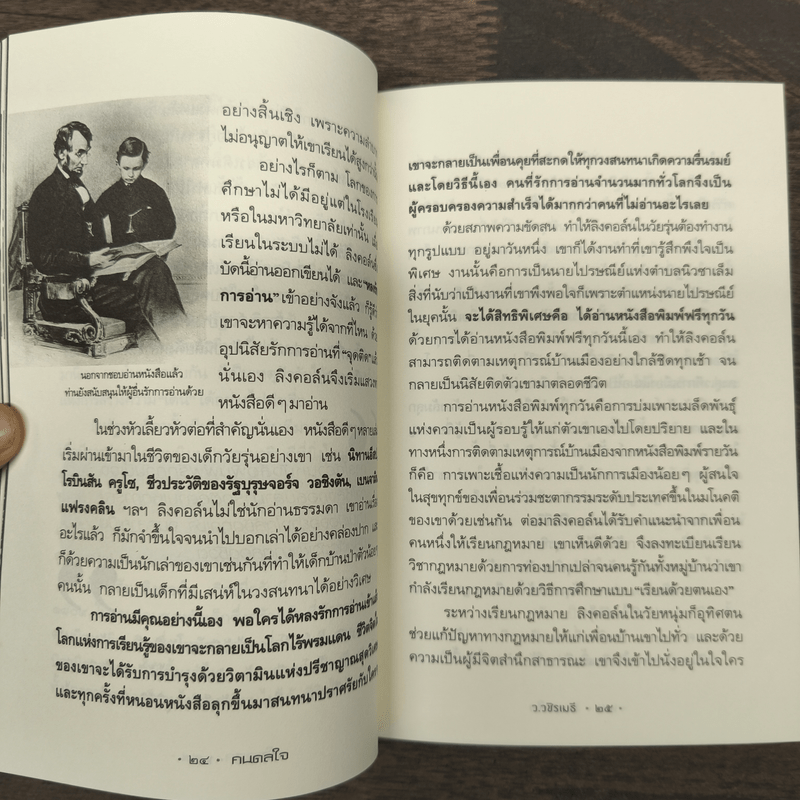 อย่างสิ้นเชิง เพราะความลำ
ไม่อนุญาตให้เขาเรียนได้สูงกว่านี้
อย่างไรก็ตาม โลกของการ
ศึกษาไม่ได้มีอยู่แต่ในโรงเรียน
หรือในมหาวิทยาลัยเท่านั้น เมื่อ
เรียนในระบบไม่ได้ ลิงคอล์นซึ่ง
บัดนี้อ่านออกเขียนได้ และ
การอ่าน” เข้าอย่างจังแล้ว ก็รู้ว่า
เขาจะหาความรู้ได้จากที่ไหน ด้วย
อุปนิสัยรักการอ่านที่ “จุดติด” แล้ว
นั่นเอง ลิงคอล์นจึงเริ่มแสวงหา
หนังสือดีๆ มาอ่าน
นอกจากชอบอ่านหนังสือแล้ว
ท่านยังสนับสนุนให้ผู้อื่นรักการอ่านด้วย
ในช่วงหัวเลี้ยวหัวต่อที่สำคัญนั่นเอง หนังสือดีๆ หลายเล่ม
เริ่มผ่านเข้ามาในชีวิตของเด็กวัยรุ่นอย่างเขา เช่น นิทานอีสป
โรบินสัน ครูโซ, ชีวประวัติของรัฐบุรุษจอร์จ วอชิงตัน, เบนจามิน
แฟรงคลิน ฯลฯ ลิงคอล์นไม่ใช่นักอ่านธรรมดา เขาอ่านเรื่อง
อะไรแล้ว ก็มักจำขึ้นใจจนนำไปบอกเล่าได้อย่างคล่องปาก และ
ก็ด้วยความเป็นนักเล่าของเขาเช่นกันที่ทำให้เด็กบ้านป่าตัวน้อยๆ
คนนั้น กลายเป็นเด็กที่มีเสน่ห์ในวงสนทนาได้อย่างวิเศษ
การอ่านมีคุณอย่างนี้เอง พอใครได้หลงรักการอ่านเข้าแล้ว
โลกแห่งการเรียนรู้ของเขาจะกลายเป็นโลกไร้พรมแดน ชีวิตจิตใจ
ของเขาจะได้รับการบำรุงด้วยวิตามินแห่งปรีชาญาณสุดวิเศษ
และทุกครั้งที่หนอนหนังสือลุกขึ้นมาสนทนาปราศรัยกับใครๆ
• ๒๔ • คนดลใจ
เขาจะกลายเป็นเพื่อนคุยที่สะกดให้ทุกวงสนทนาเกิดความรื่นรมย์
และโดยวิธีนี้เอง คนที่รักการอ่านจำนวนมากทั่วโลกจึงเป็น
ผู้ครอบครองความสำเร็จได้มากกว่าคนที่ไม่อ่านอะไรเลย
ด้วยสภาพความขัดสน ทำให้ลิงคอล์นในวัยรุ่นต้องทำงาน
ทุกรูปแบบ อยู่มาวันหนึ่ง เขาก็ได้งานทำที่เขารู้สึกพึงใจเป็น
พิเศษ งานนั้นคือการเป็นนายไปรษณีย์แห่งตำบลนิวซาเล็ม
สิ่งที่นับว่าเป็นงานที่เขาพึงพอใจก็เพราะตำแหน่งนายไปรษณีย์
ในยุคนั้น จะได้สิทธิพิเศษคือ ได้อ่านหนังสือพิมพ์ฟรีทุกวัน
ด้วยการได้อ่านหนังสือพิมพ์ฟรีทุกวันนี้เอง ทำให้ลิงคอล์น
สามารถติดตามเหตุการณ์บ้านเมืองอย่างใกล้ชิดทุกเช้า จน
กลายเป็นนิสัยติดตัวเขามาตลอดชีวิต
การอ่านหนังสือพิมพ์ทุกวันคือการบ่มเพาะเมล็ดพันธุ์
แห่งความเป็นผู้รอบรู้ให้แก่ตัวเขาเองไปโดยปริยาย และใน
ทางหนึ่งการติดตามเหตุการณ์บ้านเมืองจากหนังสือพิมพ์รายวัน
ก็คือ การเพาะเชื้อแห่งความเป็นนักการเมืองน้อยๆ ผู้สนใจ
ในสุขทุกข์ของเพื่อนร่วมชะตากรรมระดับประเทศขึ้นในมโนคติ
ของเขาด้วยเช่นกัน ต่อมาลิงคอล์นได้รับคำแนะนำจากเพื่อน
คนหนึ่งให้เรียนกฎหมาย เขาเห็นดีด้วย จึงลงทะเบียนเรียน
วิชากฎหมายด้วยการท่องปากเปล่าจนรู้กันทั้งหมู่บ้านว่าเขา
กำลังเรียนกฎหมายด้วยวิธีการศึกษาแบบ “เรียนด้วยตนเอง”
ระหว่างเรียนกฎหมาย ลิงคอล์นในวัยหนุ่มก็อุทิศตน
ช่วยแก้ปัญหาทางกฎหมายให้แก่เพื่อนบ้านเขาไปทั่ว และด้วย
ความเป็นผู้มีจิตสำนึกสาธารณะ เขาจึงเข้าไปนั่งอยู่ในใจใคร
ว.วชิรเมธี • ๒๕ •